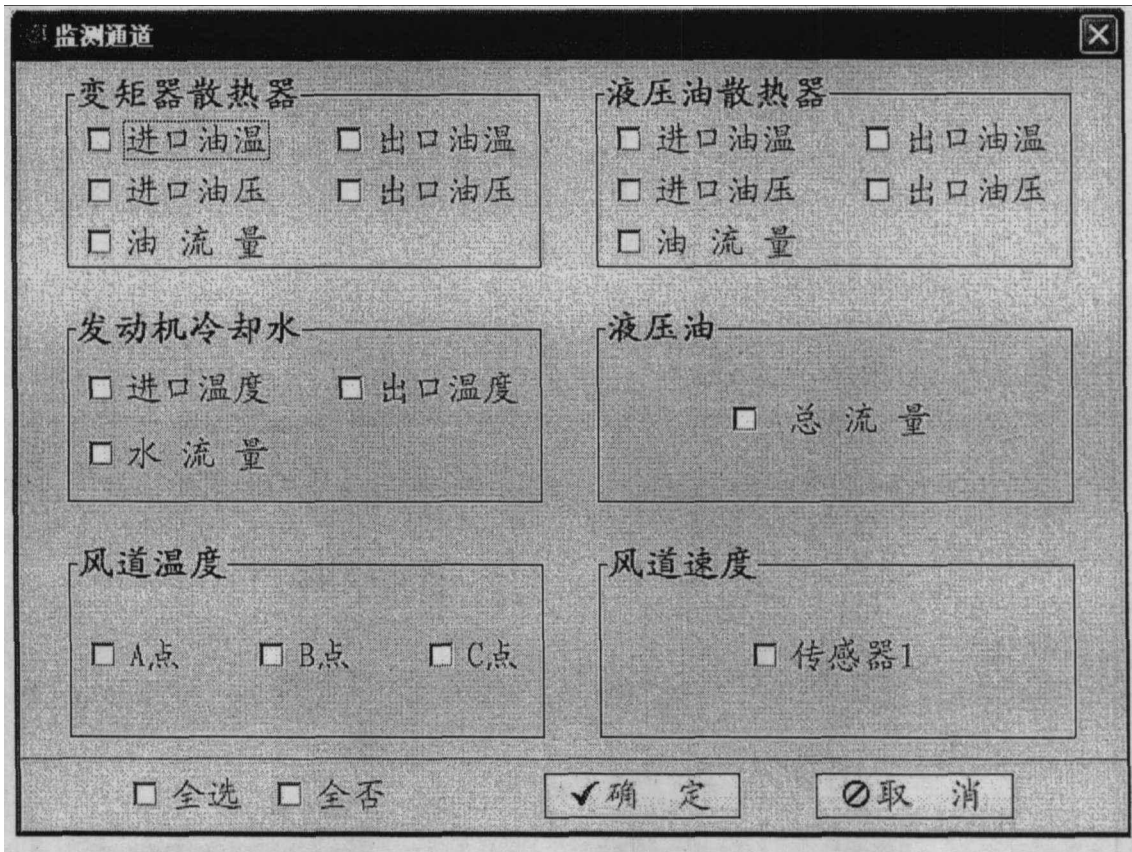 监测通道
变矩器散热器
进口油温 出口油温
进口油压 出口油压
油流量
液压油散热器
进口油温 出口油温
进口油压 出口油压
油流量
发动机冷却水
进口温度 出口温度
水流量
液压油
总流量
风道温度
A点 B点 C点
风道速度
传感器1
全选 全否 确定 取消